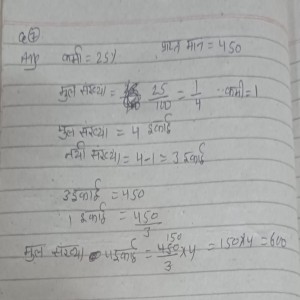 Q ⑦
Ans कमी = 25% प्राप्त मान = 450
मूल संख्या = 25/100 = 1/4 ∴ कमी = 1
मूल संख्या = 4 इकाई
नयी संख्या = 4-1 = 3 इकाई
3 इकाई = 450
1 इकाई = 450/3
मूल संख्या 4 इकाई = 450/3 × 4 = 150×4 = 600
150